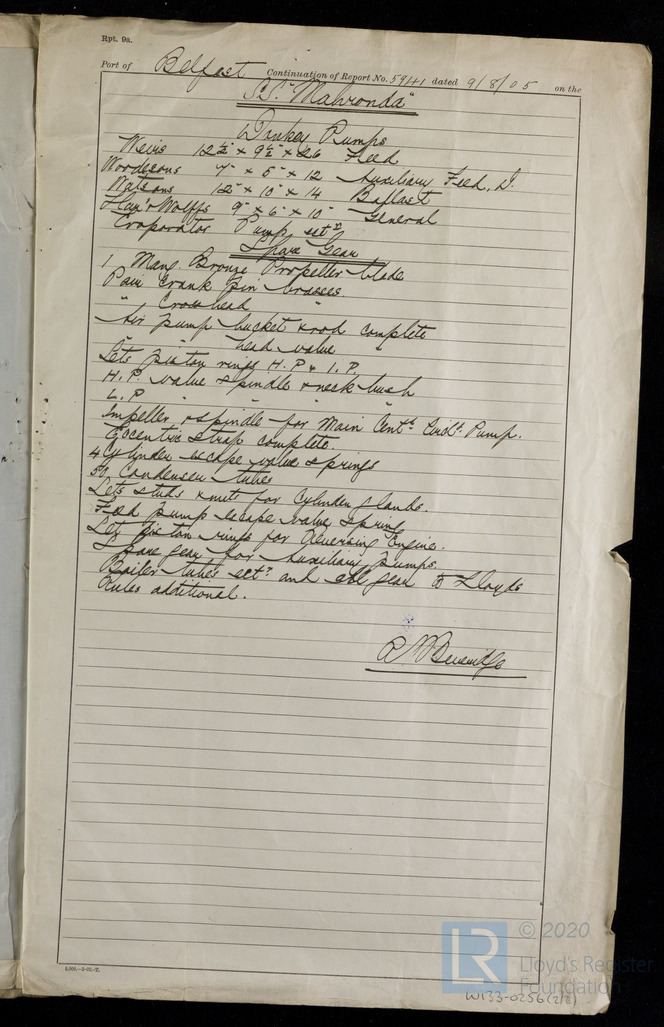 Rpt. 9a.
Port of Belfast Continuation of Report No. 5941 dated 9/8/05 on the
S.S. "Mahronda"
Donkey Pumps
Weirs 12½" × 9½" × 26 Feed
Woodesons 7" × 5" × 12 Auxiliary Feed, D.
Watsons 12" × 10" × 14 Ballast
Har'r & Wolffs 9" × 6" × 10" General
Evaporator Pump set
Spare Gear
1 Mang. Bronze Propeller blade
Pair Crank Pin brasses.
" Crosshead "
Air Pump bucket & rod complete
" " head valve "
Sets piston rings H.P. & I.P.
H.P. valve spindle & neck bush
L.P. " " "
Impeller & spindle for Main Cent. Circl. Pump.
Eccentric Strap complete.
4 Cylinder escape valve springs
50 Condenser tubes
Sets studs & nuts for Cylinder glands.
Feed Pump escape valve spring
Sets piston rings for Reversing Engine.
Spare gear for Auxiliary Pumps.
Boiler tubes set and all gear to Lloyds
Rules additional.
5,000.—3-02.—T.
LR
© 2020
Lloyd's Register
Foundation
W133-0256(2/2)